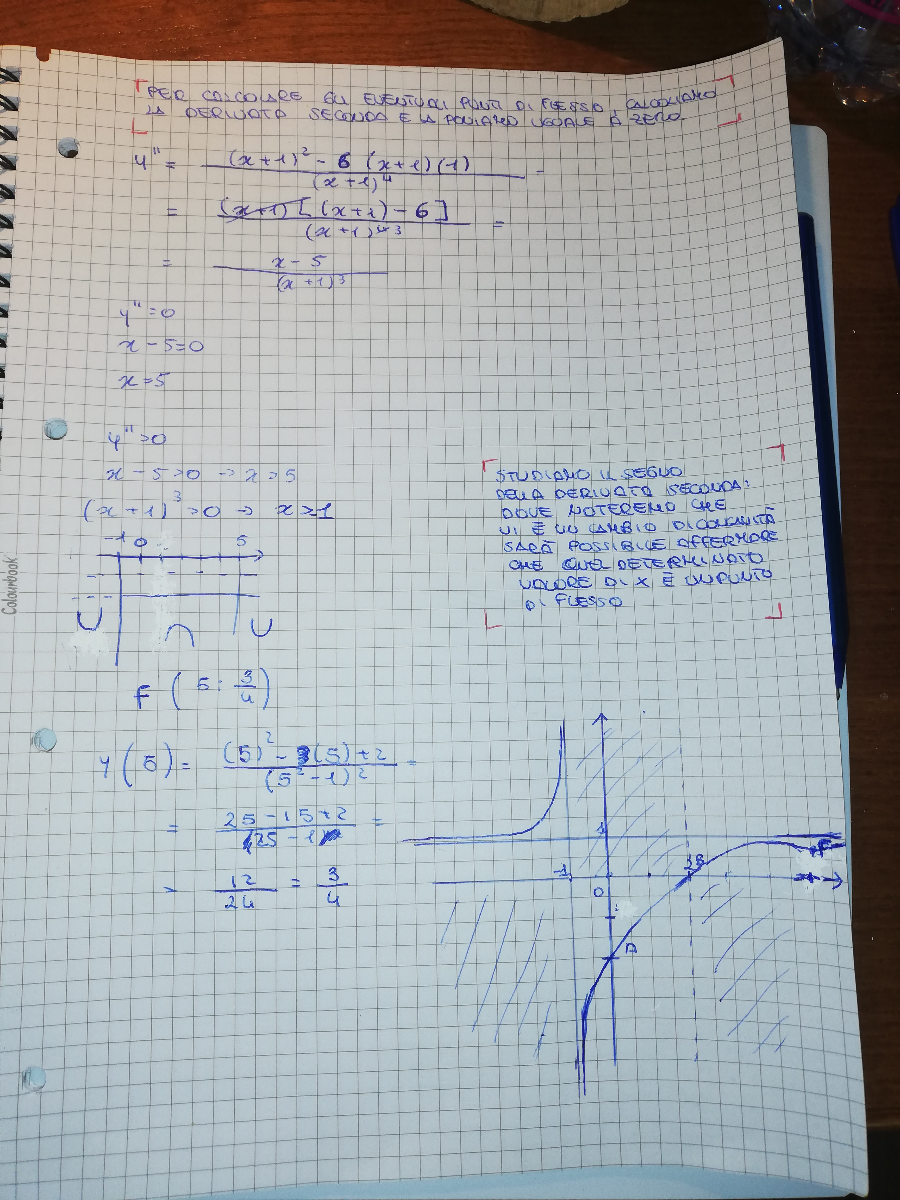 PER CALCOLARE GLI EVENTUALI PUNTI DI FLESSO, CALCOLIAMO
LA DERIVATA SECONDA E LA PONIAMO UGUALE A ZERO
y" = (x+1)² - 6 (x+1)(1) / (x+1)⁴ =
= (x+1) [(x+1) - 6] / (x+1)⁴ ³ =
= x - 5 / (x+1)³
y" = 0
x - 5 = 0
x = 5
y" > 0
x - 5 > 0 → x > 5
(x+1)³ > 0 → x > 1
STUDIAMO IL SEGNO
DELLA DERIVATA SECONDA:
DOVE NOTEREMO CHE
VI È UN CAMBIO DI CONCAVITÀ
SARÀ POSSIBILE AFFERMARE
CHE QUEL DETERMINATO
VALORE DI X È UN PUNTO
DI FLESSO
-1 0 5
Colourbook
F (5; 3/4)
y(5) = (5)² - 3(5) + 2 / (5² - 1)² =
= 25 - 15 + 2 / 25 - 1 =
= 12/24 = 3/4
1
F
-1
0
B
A